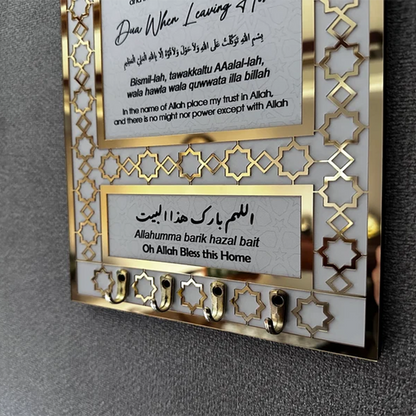 Dua When Leaving
بِسْمِ اللهِ تَوَكَّلْتُ عَلَى اللهِ وَلَا حَوْلَ وَلَا قُوَّةَ إِلَّا بِاللهِ
Bismil-lah, tawakkaltu AAalal-lah,
wala hawla wala quwwata illa billah
In the name of Allah place my trust in Allah,
and there is no might nor power except with Allah
اللهم بارك هذا البيت
Allahumma barik hazal bait
Oh Allah Bless this Home